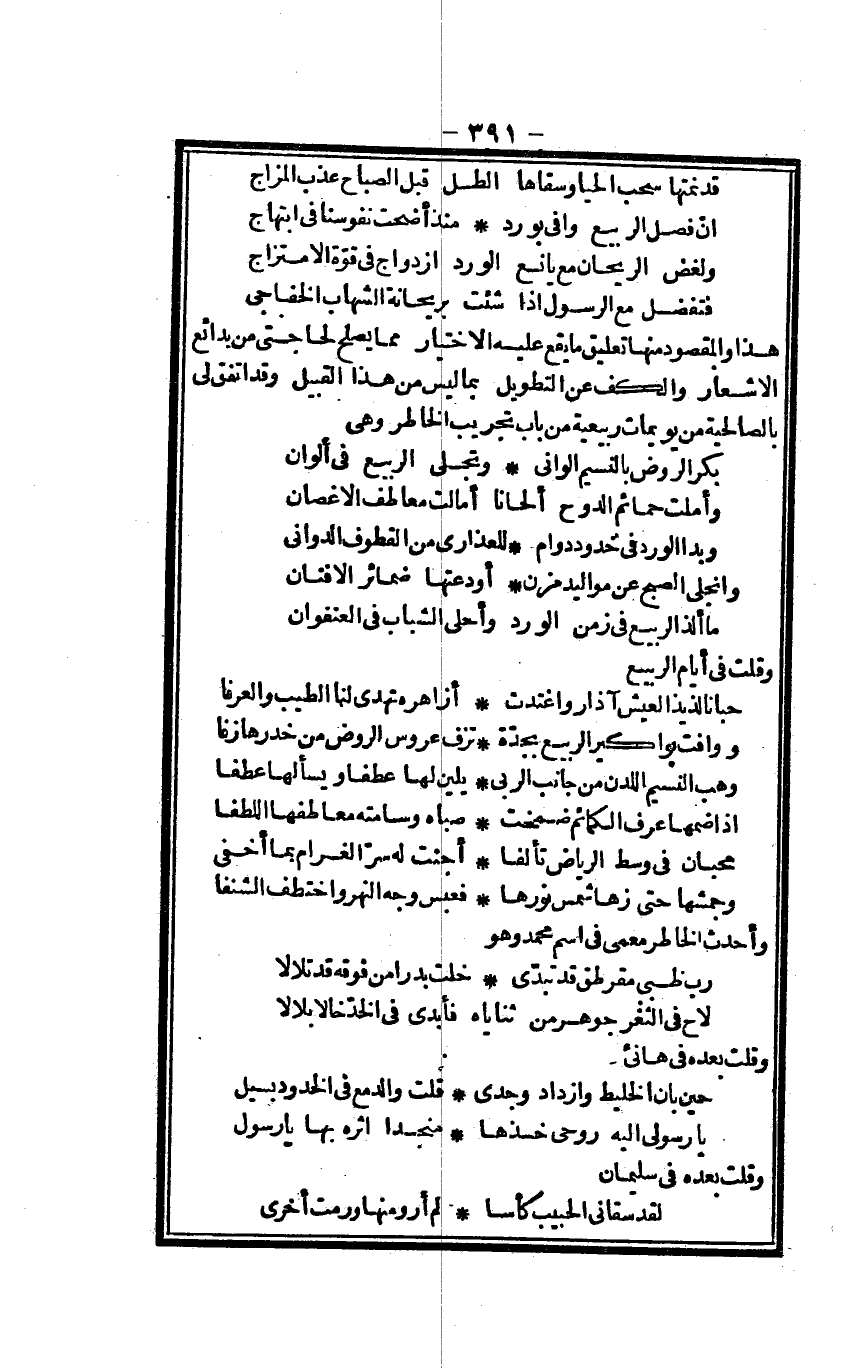 — ٣٩١ —
قد نمتها سحب الحيا وسقاها الطل قبل الصباح عذب المزاج
ان فصل الربيع وافى بورد * منذ أضحت نفوسنا فى ابتهاج
ولغض الريحان مع يانع الورد ازدواج فى قوّة الامتزاج
فتفضل مع الرسول اذا شئت بريحانة الشهاب الخفاجى
هذا والمقصود منها تعليق ما يقع عليه الاختيار مما يصلح لحاجتى من بدائع
الاشعار والكف عن التطويل بما ليس من هذا القبيل وقد اتفق لى
بالصالحية من يوميات ربيعية من باب تجريب الخاطر وهى
بكر الروض بالنسيم الوانى * وتجلى الربيع فى ألوان
وأملت حمائم الدوح ألحانا أمالت معاطف الاغصان
وبدا الورد فى خدود دوام * للعذارى من القطوف الدوانى
وانجلى الصبح عن مواليد مزن * أودعتها ضمائر الافنان
ما ألذ الربيع فى زمن الورد وأحلى الشباب فى العنفوان
وقلت فى أيام الربيع
حبانا لذيذ العيش آذار واغتدت * أزاهره تهدى لنا الطيب والعرفا
ووافت بواكير الربيع بجدّة * تزف عروس الروض من خدرها زفا
وهب النسيم اللدن من جانب الربى * يلين لها عطفا ويسألها عطفا
اذا ضمها عرف الكمائم ضمخت * صباه وسامته معاطفها اللطفا
محبان فى وسط الرياض تألفا * أجنت له سرّ الغرام بما أخفى
وجمشها حتى زها شمس نورها * فعبس وجه النهر واختطف الشنفا
وأحدث الخاطر معمى فى اسم محمد وهو
رب ظبى مقرطق قد تبدّى * خلت بدرا من فوقه قد تلالا
لاح فى الثغر جوهر من ثناياه فأبدى فى الخدّ خالا بلالا
وقلت بعده فى هانئ
حين بان الخليط وازداد وجدى * قلت والدمع فى الخدود يسيل
يا رسولى اليه روحى خذها * منجدا اثره بها يا رسول
وقلت بعده فى سليمان
لقد سقانى الحبيب كأسا * لم أرو منها ورمت أخرى